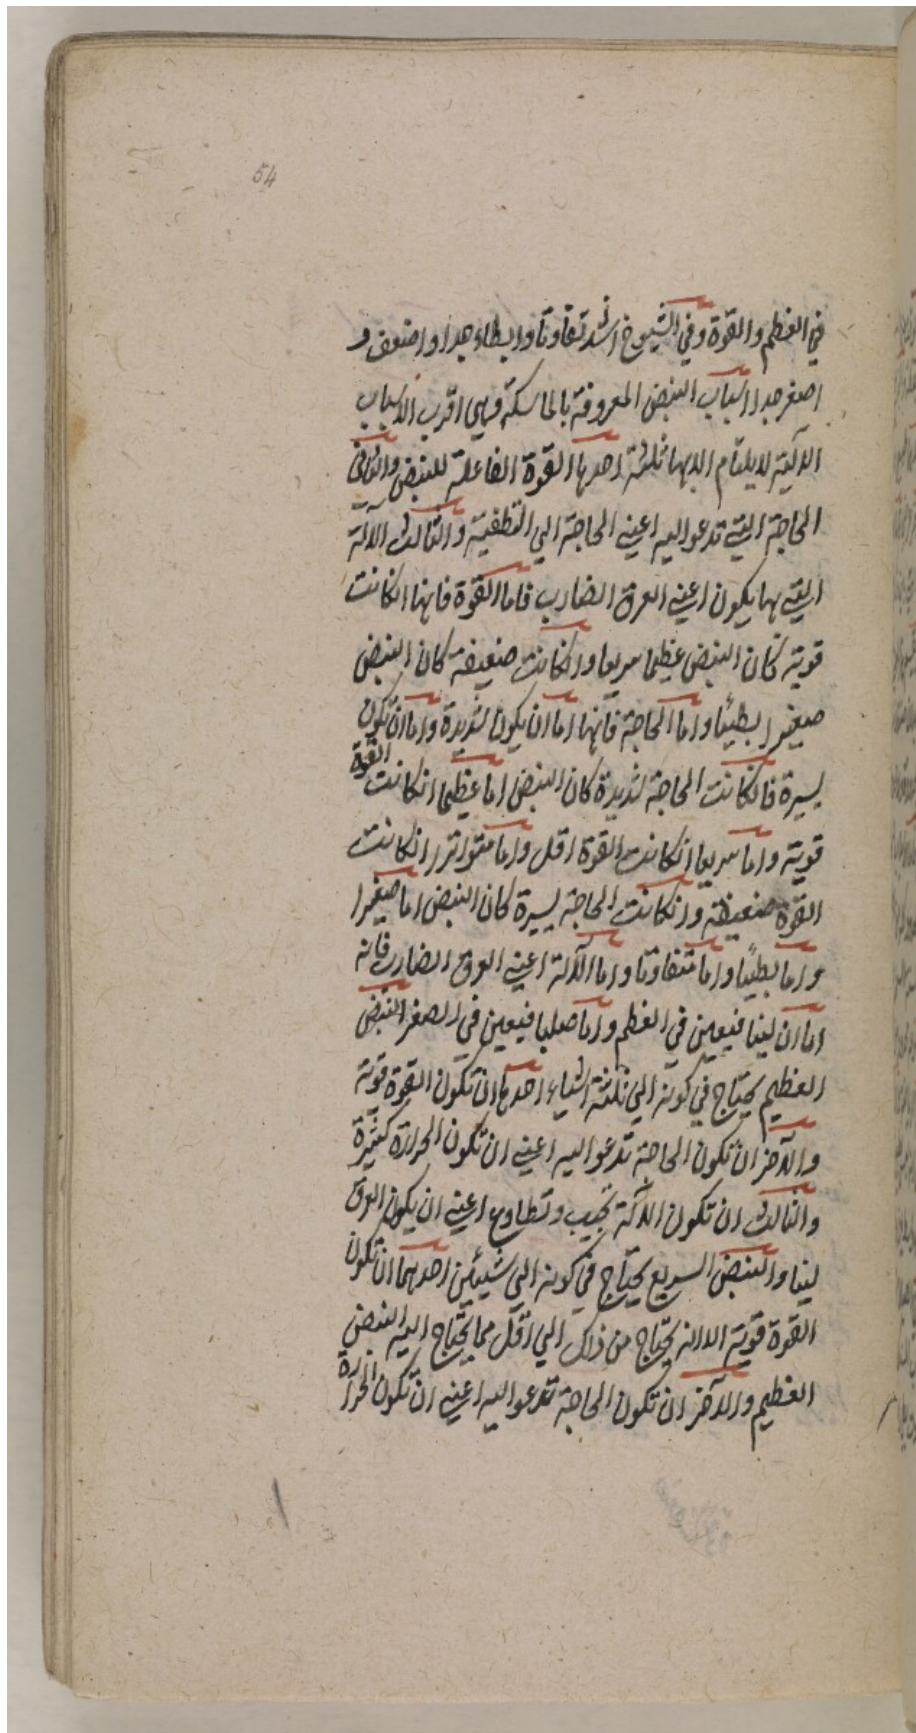 54
في العظم والقوة وفي الشيوخ اشد تفاوتا وابطاء جدا واضعف و
اصغر جدا اسباب النبض المعروفة بالماسكة وهي اقرب الاسباب
الالية لا يلتام الا بها ثلثة احدها القوة الفاعلة للنبض والثاني
الحاجة التي تدعوا اليه اعني الحاجة الي التطفية والثالث الآلة
التي بها يكون اعني العرق الضارب فاما القوة فانها انكانت
قوية كان النبض عظيما سريعا وانكانت ضعيفة كان النبض
صغيرا بطيئا واما الحاجة فانها اما ان يكون شديدة واما ان تكون
يسيرة فانكانت الحاجة شديدة كان النبض اما عظيما انكانت القوة
قوية واما سريعا انكانت القوة اقل واما متواترا انكانت
القوة ضعيفة وانكانت الحاجة يسيرة كان النبض اما صغيرا
واما بطيئا واما متفاوتا واما الآلة اعني العرق الضارب فانه
اما ان لينا فيعين في العظم واما صلبا فيعين في الصغر النبض
العظيم يحتاج في كونه الي ثلثة اشياء احدها ان تكون القوة قوية
والآخر ان تكون الحاجة تدعوا اليه اعني ان تكون الحرارة كثيرة
والثالث ان تكون الآلة تجيب وتطاوع اعني ان يكون العرق
لينا والنبض السريع يحتاج في كونه الي شيئين احدهما ان تكون
القوة قوية الا انه يحتاج من ذلك الي اقل مما يحتاج اليه النبض
العظيم والآخر ان تكون الحاجة تدعوا اليه اعني ان تكون الحرارة